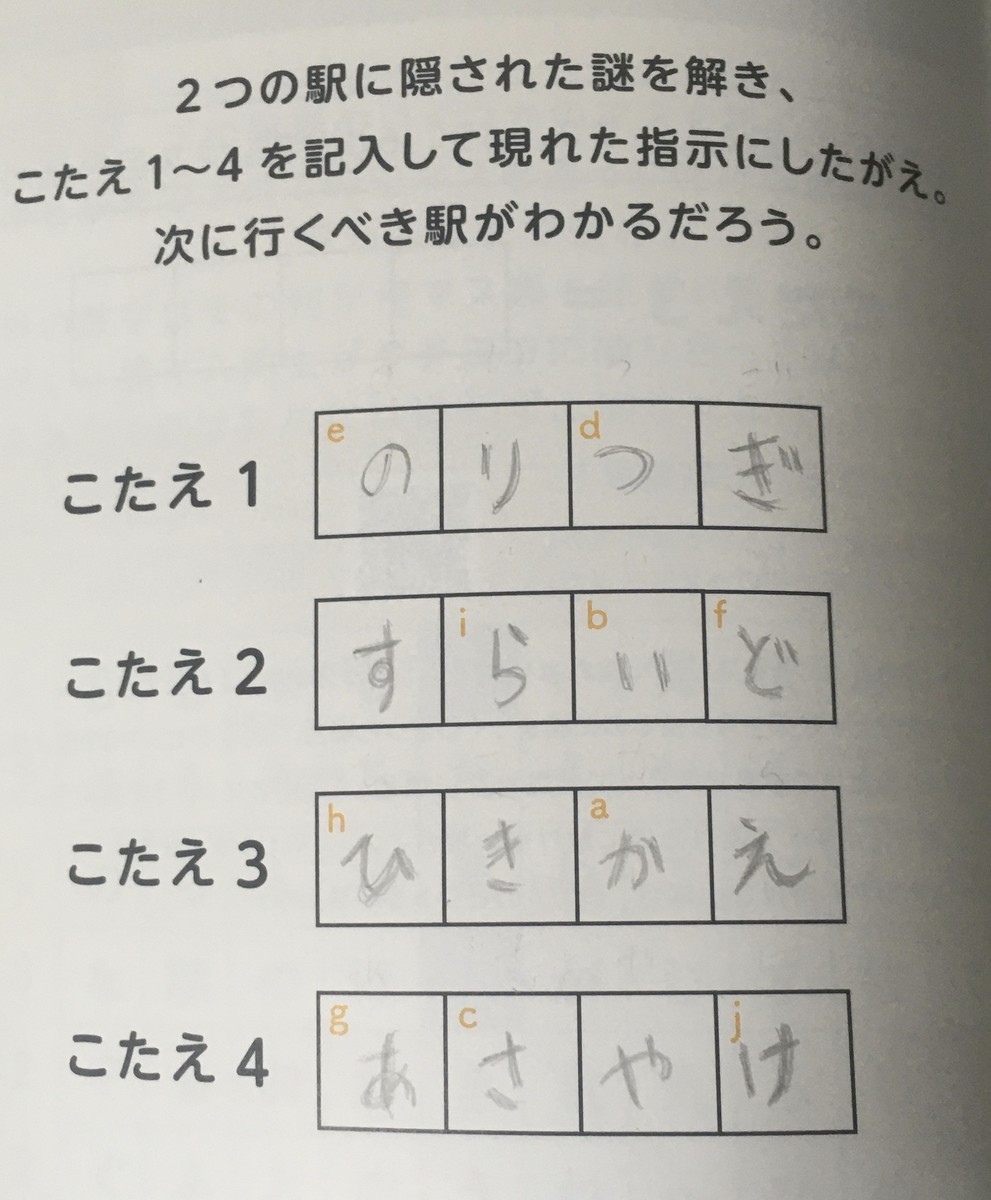 2つの駅に隠された謎を解き、
こたえ1〜4を記入して現れた指示にしたがえ。
次に行くべき駅がわかるだろう。
こたえ1 e の り d つ ぎ
こたえ2 す i ら b い f ど
こたえ3 h ひ き a か え
こたえ4 g あ c さ や j け